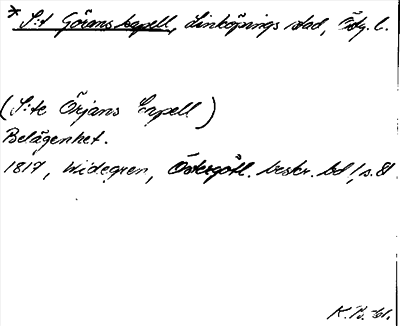 * S:t Görans kapell, Linköpings stad, Östg. l.
(S:te Örjans Capell)
Belägenhet.
1817, Widegren, Östergötl. beskr. bd 1, s. 81
K. B. 61.